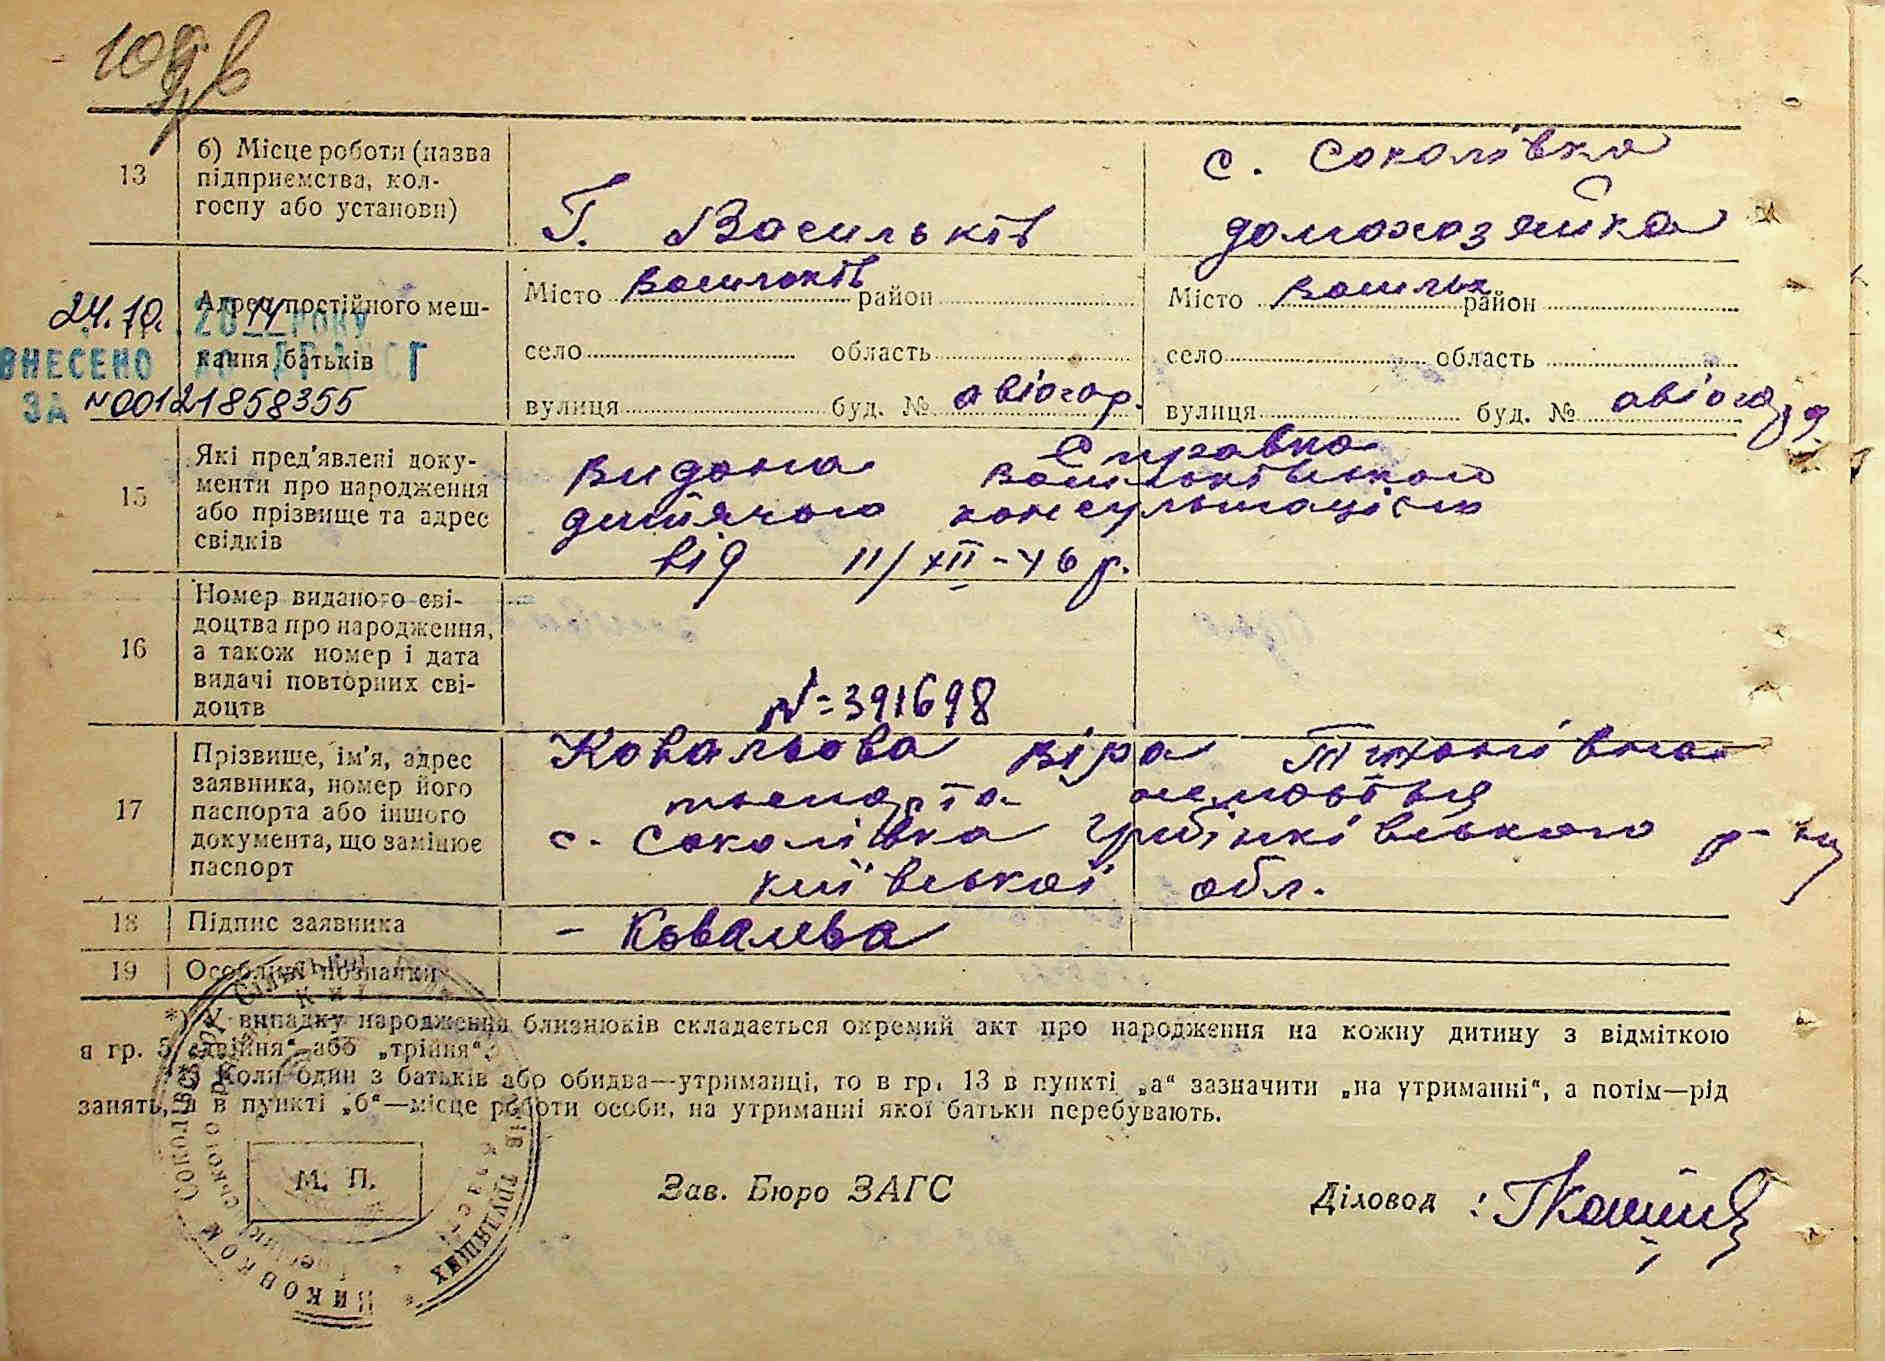 109
13
б) Місце роботи (назва
підприємства, кол-
госпу або установи)
Г. Васильків
с. Соколівка
домохозяйка
Адрес постійного меш-
кання батьків
24.10. 2014 РОКУ
ВНЕСЕНО ДО ДРАЦСГ
ЗА №00121858355
Місто Васильків район
село область
вулиця буд. № авіогор.
Місто Васильк район
село область
вулиця буд. № авіогор
15
Які пред'явлені доку-
менти про народження
або прізвище та адрес
свідків
Справка
видана Васильківською
дитячою консультацією
від 11/XII-46 р.
16
Номер виданого сві-
доцтва про народження,
а також номер і дата
видачі повторних сві-
доцтв
№=391698
17
Прізвище, ім'я, адрес
заявника, номер його
паспорта або іншого
документа, що замінює
паспорт
Ковальова Віра Тихонівна
паспорта
с. Соколівка Гребінківського р-ну
київської обл.
18
Підпис заявника
- Ковальва
19
Особливі познаки
*) У випадку народження близнюків складається окремий акт про народження на кожну дитину з відміткою
в гр. 5 „двійня“ або „трійня“.
*) Коли один з батьків або обидва—утриманці, то в гр. 13 в пункті „а“ зазначити „на утриманні“, а потім—рід
занять, а в пункті „б“—місце роботи особи, на утриманні якої батьки перебувають.
М. П.
ВИКОНКОМ СОКОЛІВСЬКОЇ СІЛЬСЬКОЇ
ТРУДЯЩИХ
Зав. Бюро ЗАГС
Діловод :